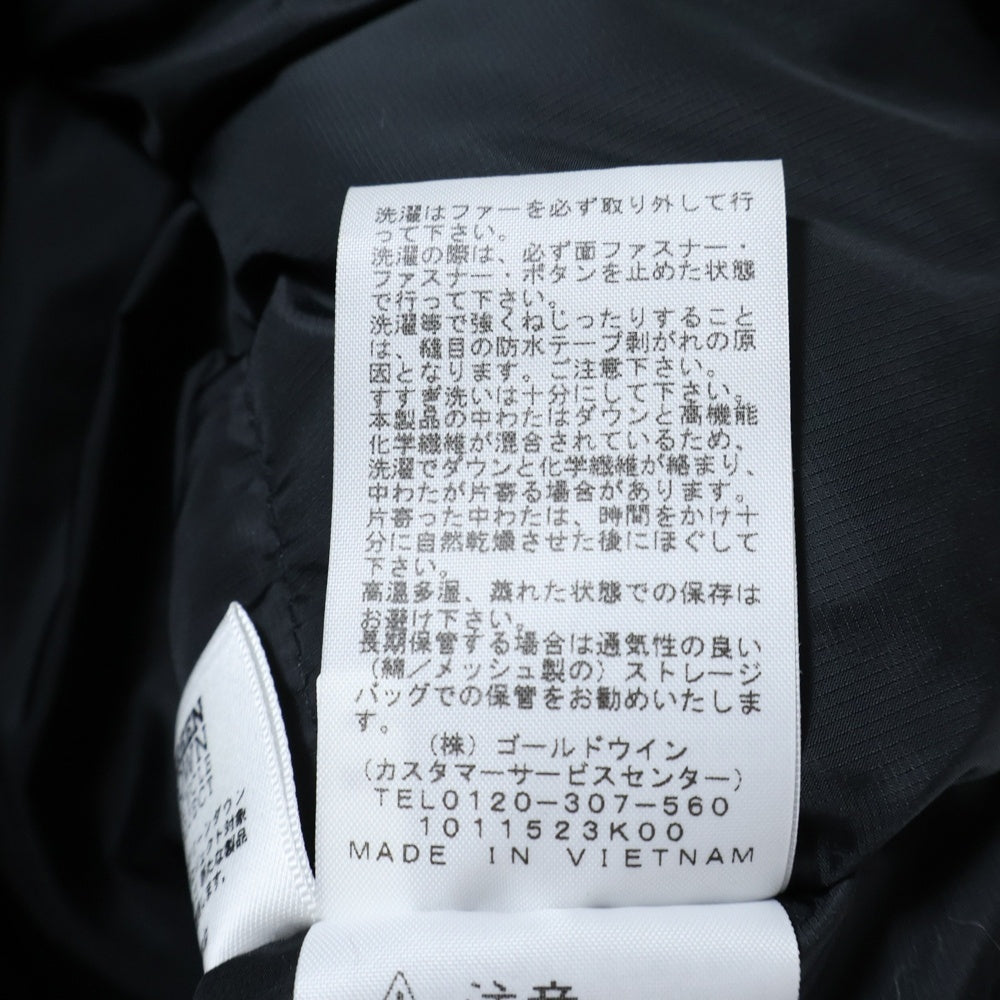 洗濯はファーを必ず取り外して行
って下さい。
洗濯の際は、必ず面ファスナー・
ファスナー・ボタンを止めた状態
で行って下さい。
洗濯等で強くねじったりすること
は、縫目の防水テープ剥がれの原
因となります。ご注意下さい。
すすぎ洗いは十分にして下さい。
本製品の中わたはダウンと高機能
化学繊維が混合されているため、
洗濯でダウンと化学繊維が絡まり、
中わたが片寄る場合があります。
片寄った中わたは、時間をかけ十
分に自然乾燥させた後にほぐして
下さい。
高温多湿、蒸れた状態での保存は
お避け下さい。
長期保管する場合は通気性の良い
(綿/メッシュ製の)ストレージ
バッグでの保管をお勧めいたしま
す。
(株)ゴールドウイン
(カスタマーサービスセンター)
TEL0120-307-560
1011523K00
MADE IN VIETNAM
ンダウン
クト対象
たな製品
ます。
注意